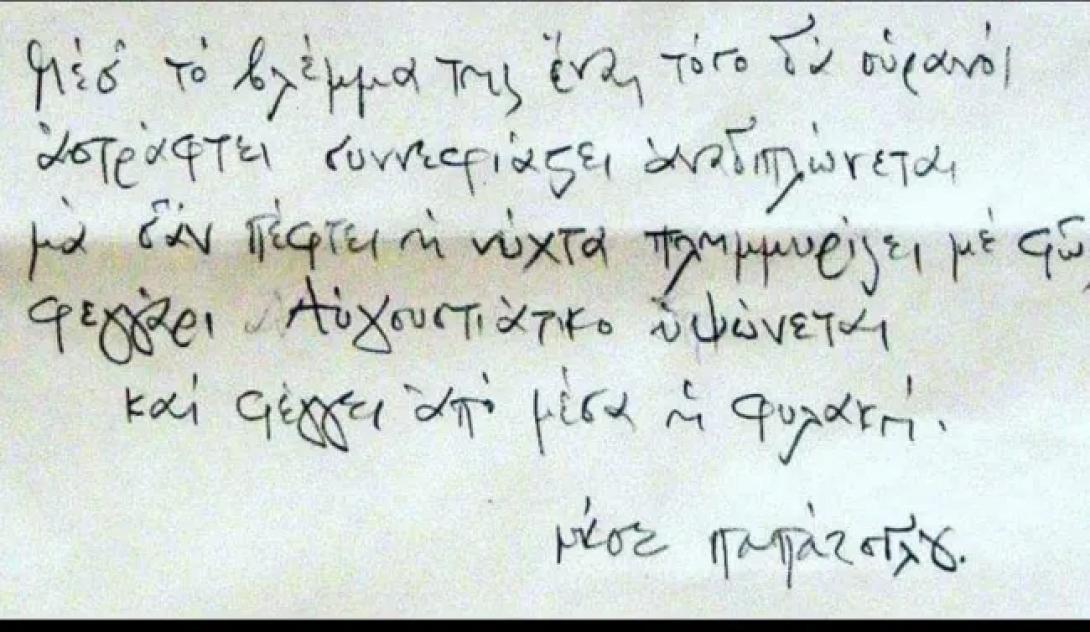 Μέσ' τὸ βλέμμα της ἕνας τόσο δὰ οὐρανός
ἀστράφτει συννεφιάζει ἀναδιπλώνεται
μὰ σὰν πέφτει ἡ νύχτα πλημμυρίζει μὲ φῶς
φεγγάρι Αὐγουστιάτικο ὑψώνεται
καὶ φέγγει ἀπὸ μέσα ἡ φυλακή.